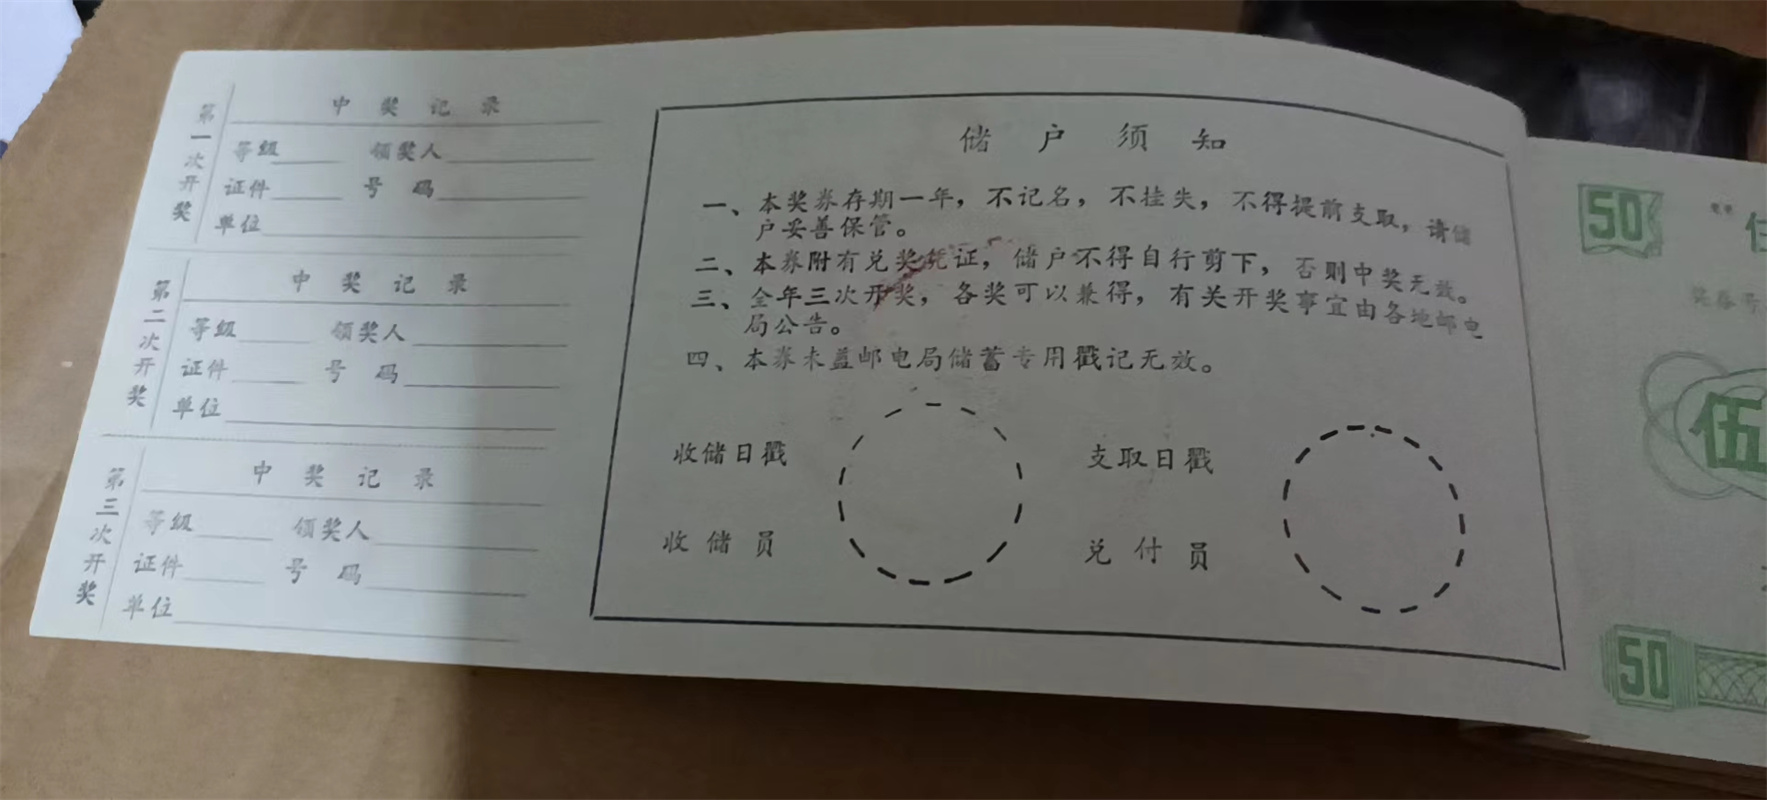 第一次开奖
中奖记录
等级 领奖人
证件 号码
单位
第二次开奖
中奖记录
等级 领奖人
证件 号码
单位
第三次开奖
中奖记录
等级 领奖人
证件 号码
单位
储户须知
一、本奖券存期一年，不记名，不挂失，不得提前支取，请储
户妥善保管。
二、本券附有兑奖凭证，储户不得自行剪下，否则中奖无效。
三、全年三次开奖，各奖可以兼得，有关开奖事宜由各地邮电
局公告。
四、本券未盖邮电局储蓄专用戳记无效。
收储日戳 支取日戳
收储员 兑付员
50
奖券号
伍
50